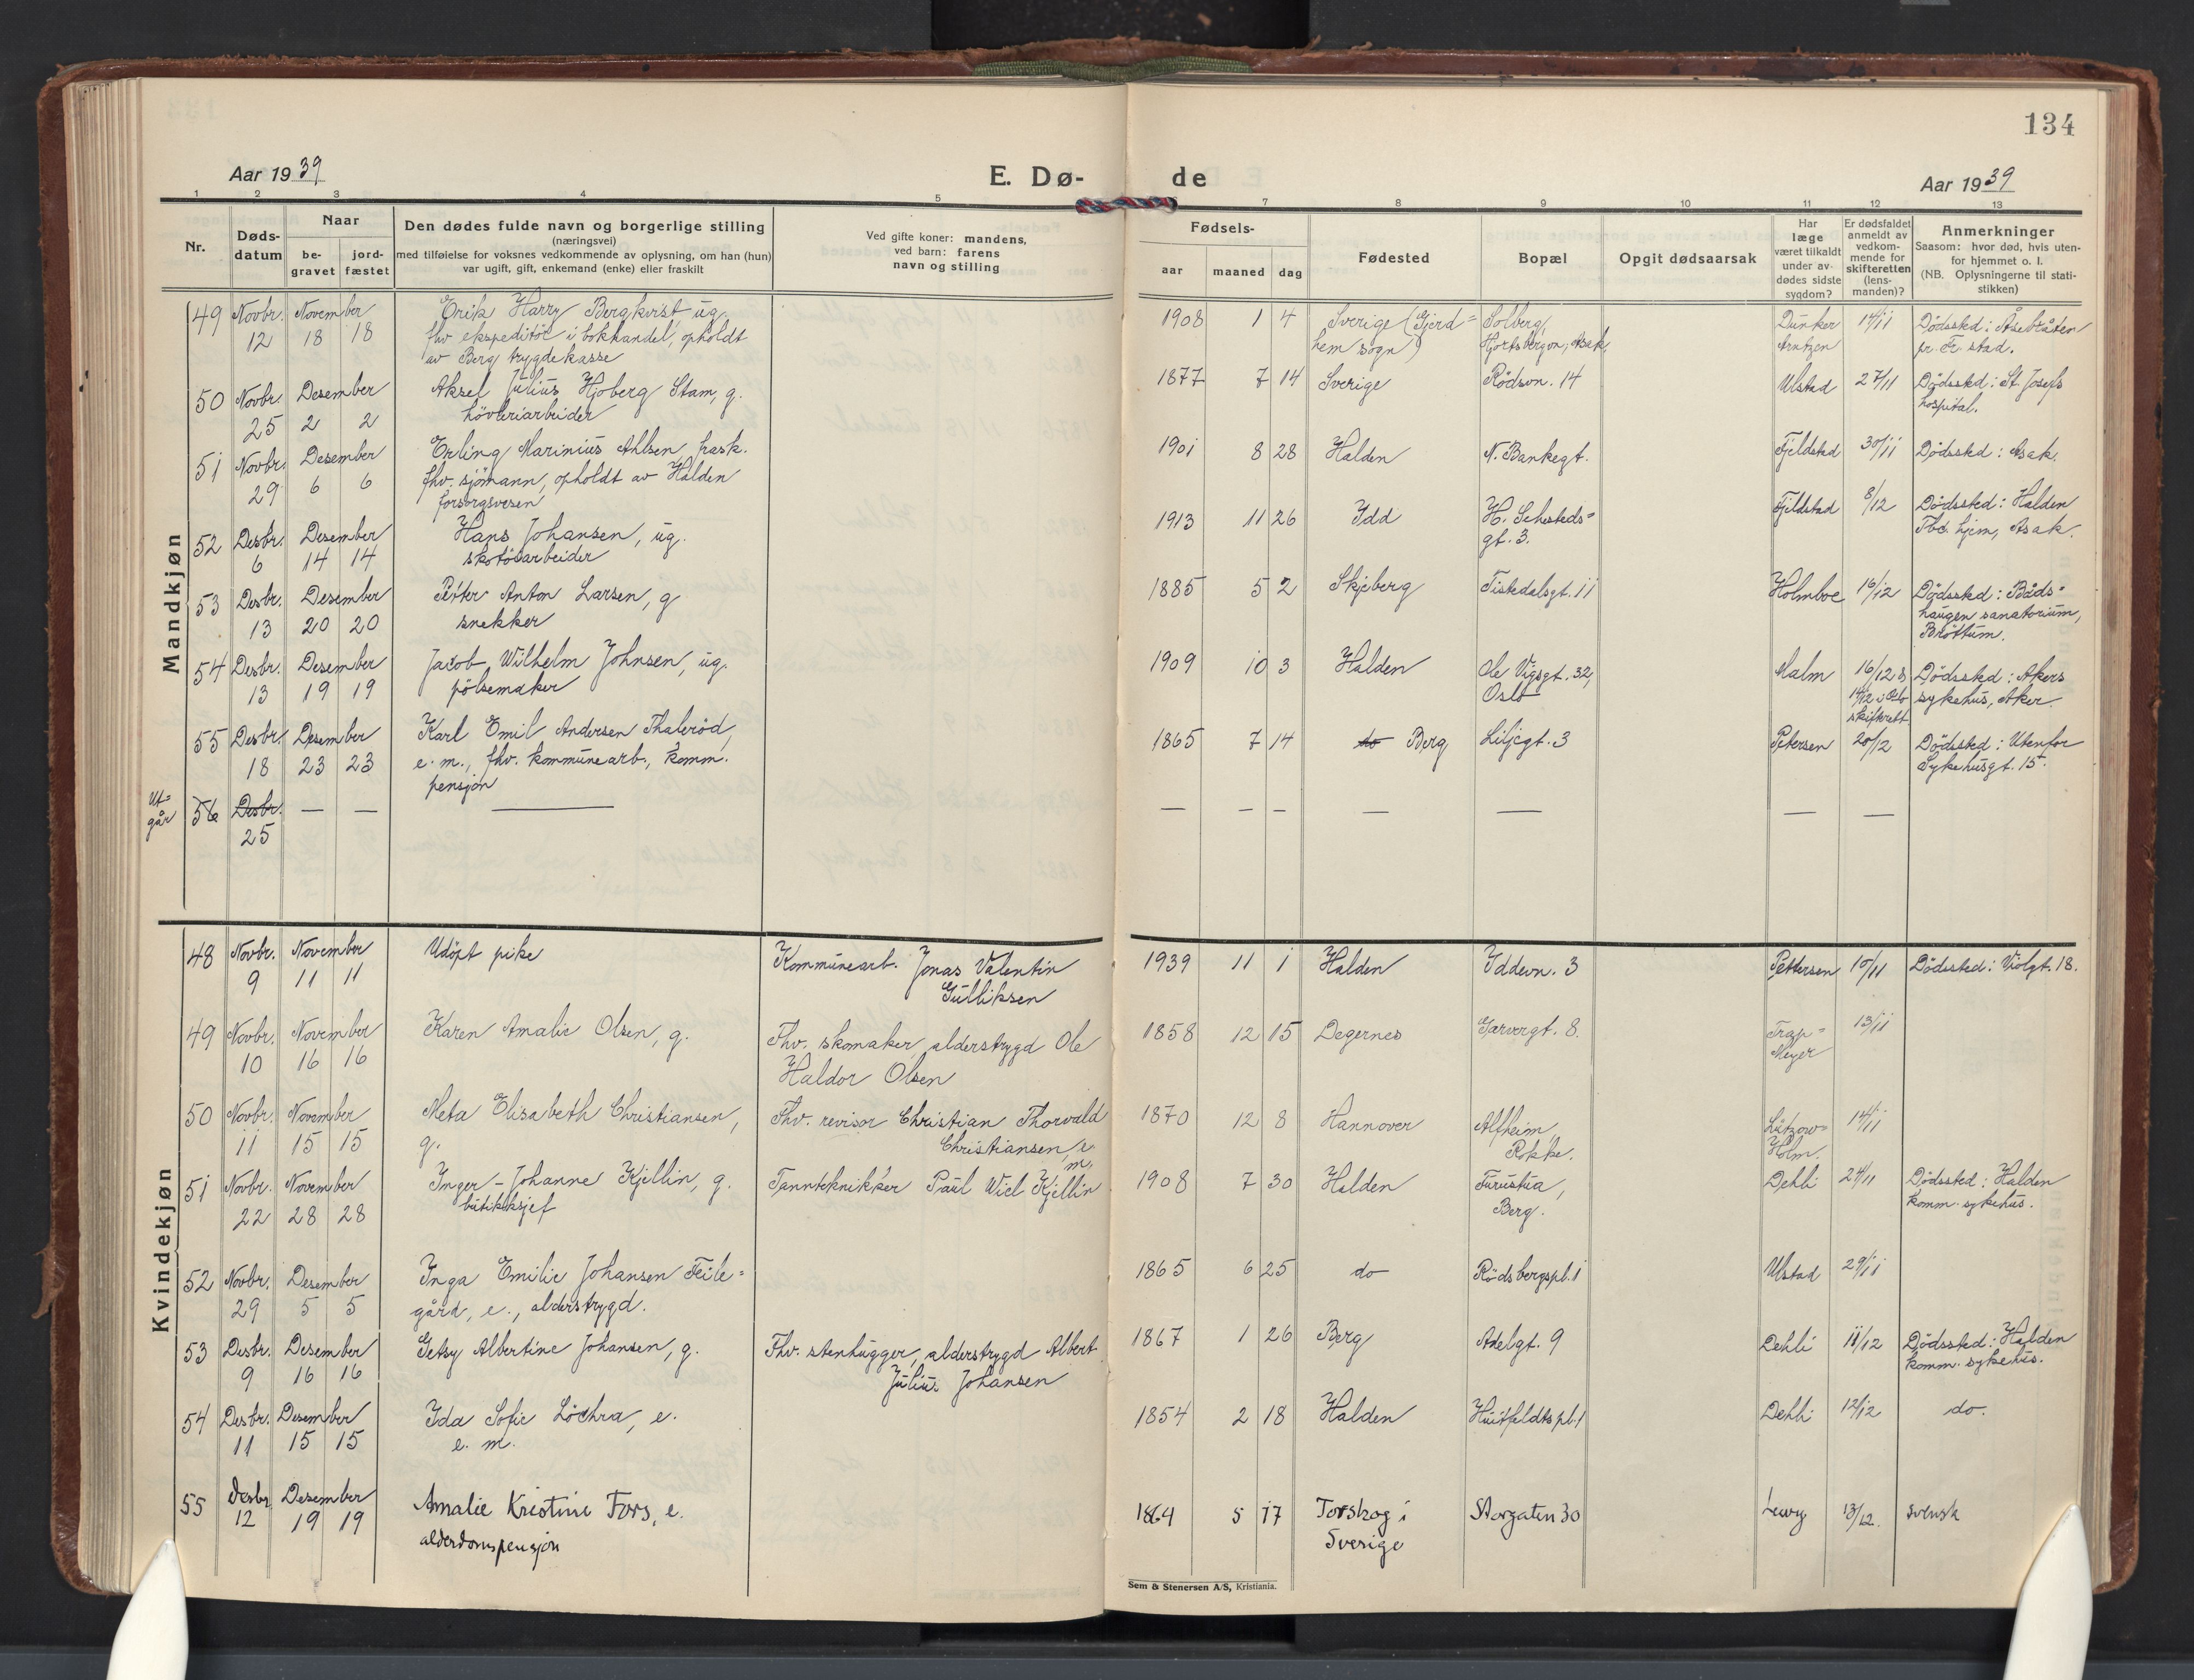 134
Aar 19 39
E. Dø-
de
Aar 19 39
1 2 3 4 5 7 8 9 10 11 12 13
Nr.
Døds-
datum
Naar
be-
gravet
jord-
fæstet
Den dødes fulde navn og borgerlige stilling
(næringsvei)
med tilføielse for voksnes vedkommende av oplysning, om han (hun)
var ugift, gift, enkemand (enke) eller fraskilt
Ved gifte koner: mandens,
ved barn: farens
navn og stilling
Fødsels-
aar maaned dag
Fødested
Bopæl
Opgit dødsaarsak
Har
læge
været tilkaldt
under av-
dødes sidste
sygdom?
Er dødsfaldet
anmeldt av
vedkom-
mende for
skifteretten
(lens-
manden)?
Anmerkninger
Saasom: hvor død, hvis uten-
for hjemmet o. l.
(NB. Oplysningerne til stati-
stikken)
Mandkjøn
49 Novbr. November Erik Harry Bergkvist, ug. 1908 1 4 Sverige (Gjerd= Solberg, Dunker 14/11 Dödssted: Åsebråten
12 18 18 fhv. ekspeditör i bokhandel, opholdt hem sogn) Hjortsbergon, Asak, Arntzen pr. Fr.stad.
av Berg trygdekasse
50 Novbr. Desember Aksel Julius Hjoberg Stam, g. 1877 7 14 Sverige Rödsvn. 14 Ulstad 27/11 Dödssted: St. Josefs
25 2 2 hövleriarbeider hospital.
51 Novbr. Desember Erling Marinius Ahlsen, frask. 1901 8 28 Halden N. Bankegt. Fjeldstad 30/11 Dödssted: Asak.
29 6 6 fhv. sjömann, opholdt av Halden
forsorgsvesen
52 Desbr. Desember Hans Johansen, ug. 1913 11 26 Idd H. Sehesteds= Fjeldstad 8/12 Dödssted: Halden
6 14 14 skotöiarbeider gt. 3. Tbc. hjem, Asak.
53 Desbr. Desember Peter Anton Larsen, g 1885 5 2 Skjeberg Tistedalsgt. 11 Holmboe 16/12 Dödssted: Båds=
13 20 20 snekker haugen sanatorium,
Bröttum.
54 Desbr. Desember Jacob Wilhelm Johnsen, ug. 1909 10 3 Halden Ole Vigsgt. 32, Malm 16/12 & Dödssted: Akers
13 19 19 pölsemaker Oslo 14/12 i Oslo sykehus, Aker.
skifterett
55 Desbr. Desember Karl Emil Andersen Thaleröd, 1865 7 14 do Berg Liljegt. 3 Petersen 20/12 Dödssted: Utenfor
18 23 23 e. m., fhv. kommunearb., komm. Sykehusgt. 15.
pensjon
Ut=
går 56 Desbr. — — — — — — — — — —
25
Kvindekjøn
48 Novbr. November Udöpt pike Kommunearb. Jonas Valentin 1939 11 1 Halden Iddevn. 3 Pettersen 10/11 Dödssted: Violgt. 18.
9 11 11 Gulliksen
49 Novbr. November Karen Amalie Olsen, g. Fhv. skomaker, alderstrygd Ole 1858 12 15 Degernes Garvergt. 8. Trap= 13/11
10 16 16 Haldor Olsen Meyer
50 Novbr. November Meta Elisabeth Christiansen, Fhv. revisor Christian Thorvald 1870 12 8 Hannover Alfheim, Lützow= 14/11
11 15 15 g. Christiansen, e. Rokke. Holm.
m.
51 Novbr. November Inger-Johanne Kjellin, g. Tanntekniker Paul Wiel Kjellin 1908 7 30 Halden Furustua, Dehli 24/11 Dödssted: Halden
22 28 28 butikksjef Berg. komm. sykehus.
52 Novbr. Desember Inga Emilie Johansen Teile= 1865 6 25 do Rödsbergspl. 1 Ulstad 29/11
29 5 5 gård, e., alderstrygd.
53 Desbr. Desember Getsy Albertine Johansen, g. Fhv. stenhugger, alderstrygd Albert 1867 1 26 Berg Adelgt. 9 Dehli 11/12 Dödssted: Halden
9 16 16 Julius Johansen komm. sykehus.
54 Desbr. Desember Ida Sofie Löchra, e. 1854 2 18 Halden Huitfeldtspl. 1 Dehli 12/12 do.
11 15 15 e. m.
55 Desbr. Desember Amalie Kristine Fors, e. 1864 5 17 Torskog i Storgaten 30 Lewy 13/12. svensk
12 19 19 alderdomspensjon Sverige
Sem & Stenersen A/S, Kristiania.